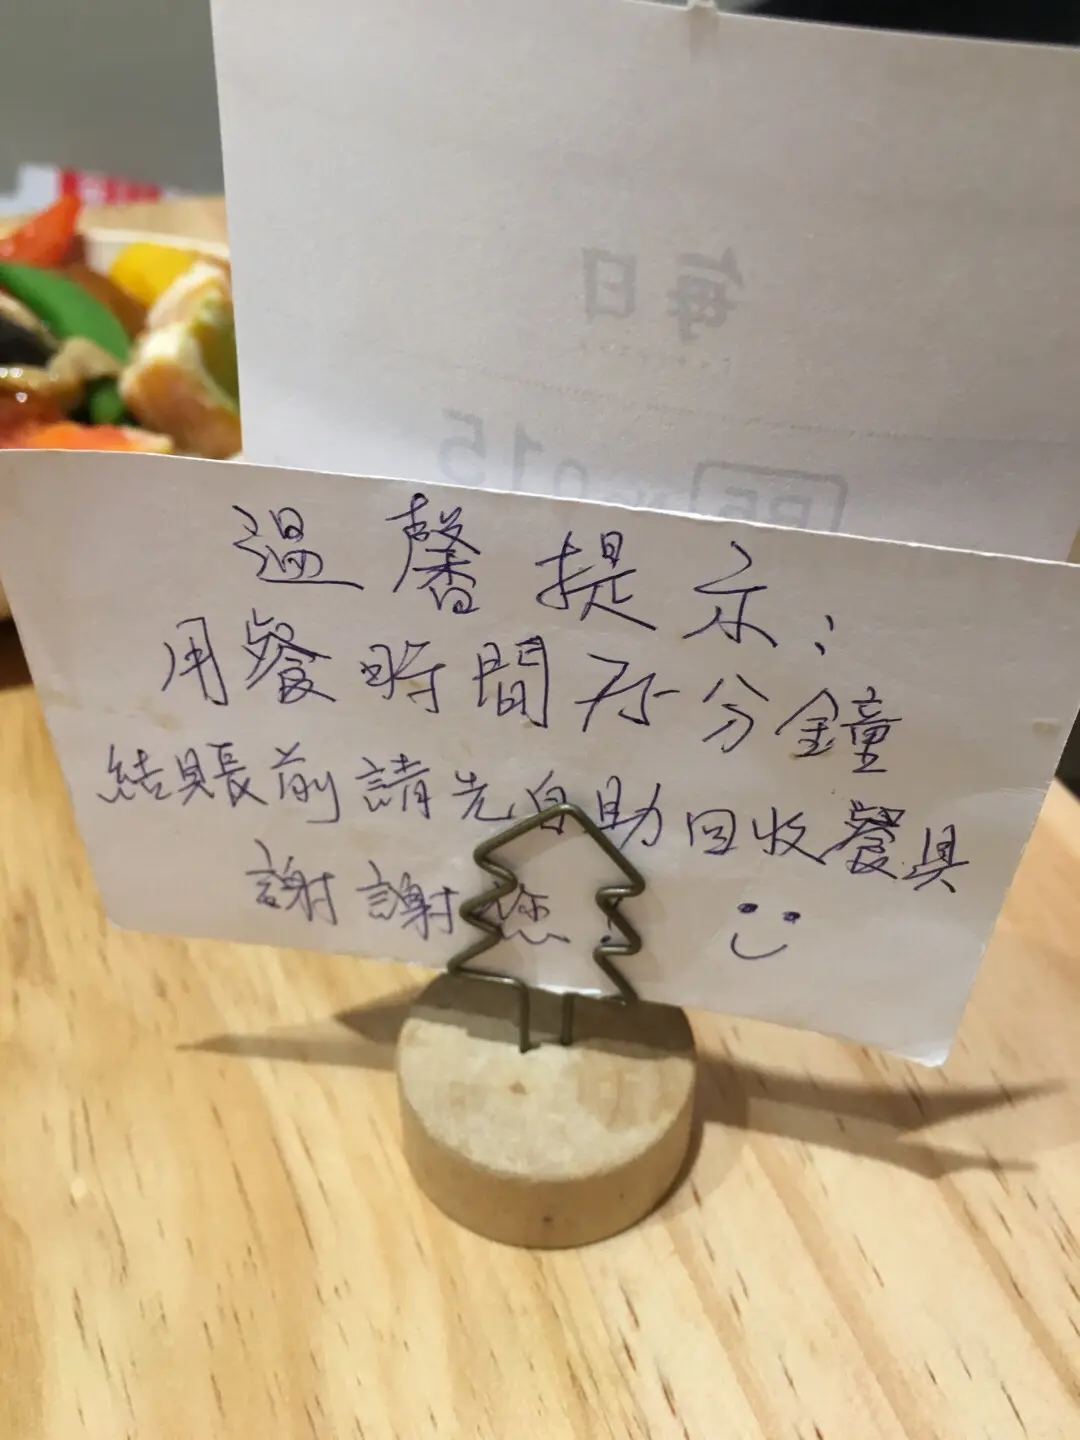 每日
No 015
溫馨提示:
用餐時間75分鐘
結賬前請先自助回收餐具
謝謝您!